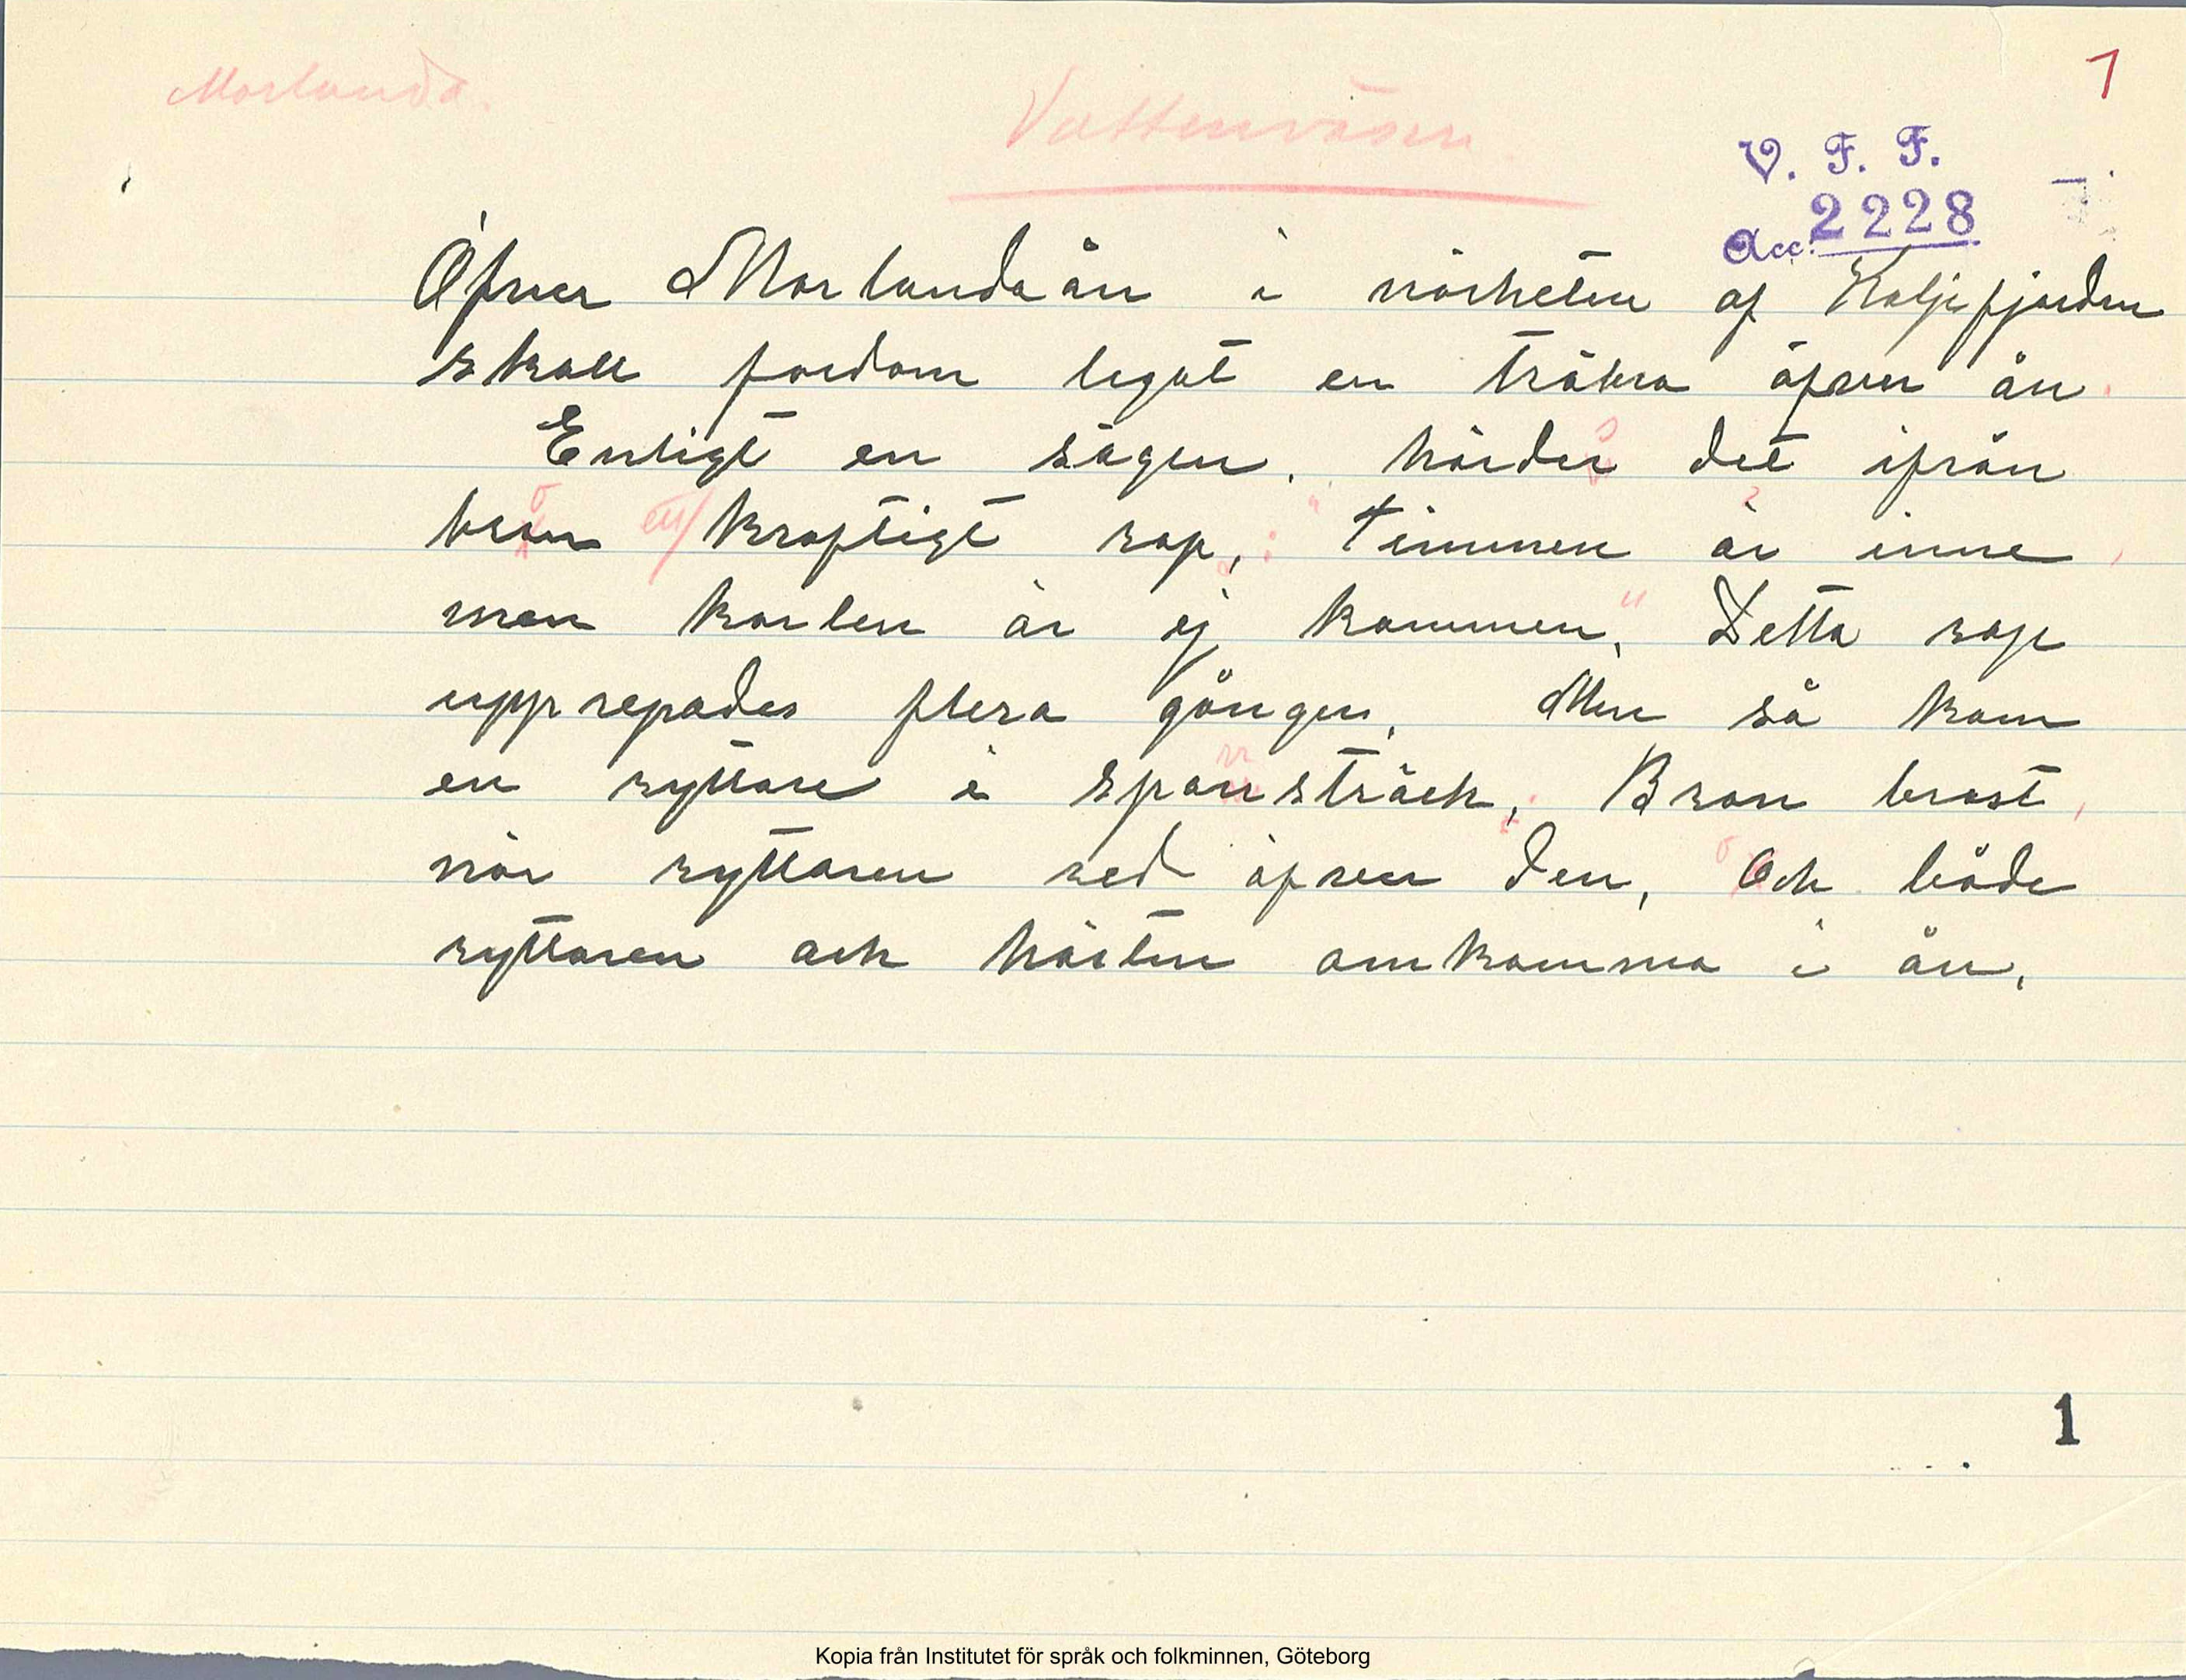 Morlanda.
1
Vattenväsen.
V. F. F.
Acc. 2228
Öfver Morlandaån i närheten af Koljefjorden
skall fordom legat en träbro öfver ån.
Enligt en sägen, hördes det ifrån
bron ett kraftigt rop,: "Timmen är inne,
men karlen är ej kommen." Detta rop
upprepades flera gånger. Men så kom
en ryttare i spannsträck, Bron brast,
när ryttaren red öfver den, och både
ryttaren och hästen omkomma i ån.
1
Kopia från Institutet för språk och folkminnen, Göteborg